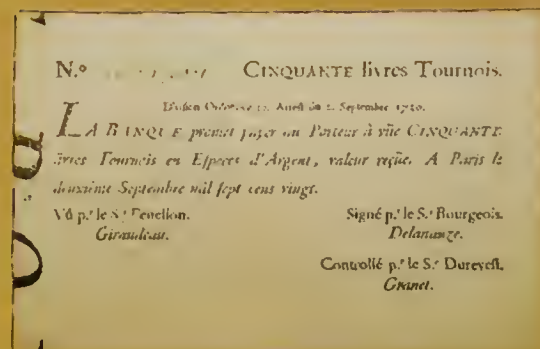 N.º CINQUANTE livres Tournois.
Division Ordonnée par Arrest du 2. Septembre 1720.
LA BANQUE promet payer au Porteur à vûë CINQUANTE
livres Tournois en Especes d'Argent, valeur reçûë. A Paris le
deuxiéme Septembre mil sept cens vingt.
Vû p.r le S.r Fenellon.
Giraudeau.
Signé p.r le S.r Bourgeois.
Delanauze.
Controllé p.r le S.r Durevest.
Granet.